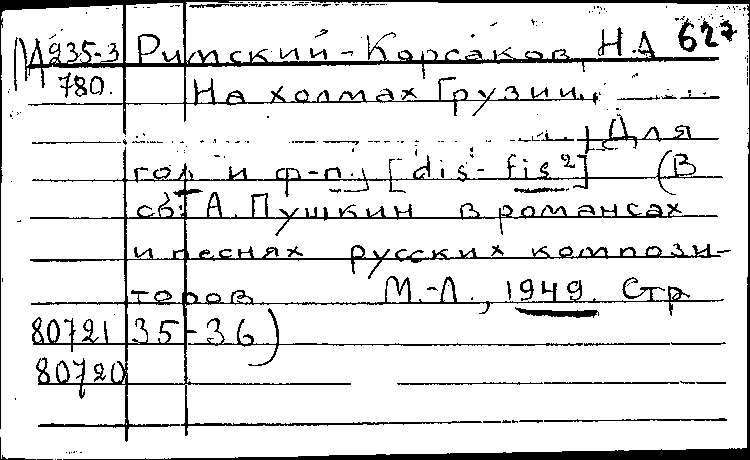 М 235-3 Римский-Корсаков, Н.А 627
780. На холмах Грузии..
Для
гол и ф-п.] [dis-fis²] (В
сб: А. Пушкин в романсах
и песнях русских компози-
торов М.-Л., 1949. Стр
80721 35-36)
80720